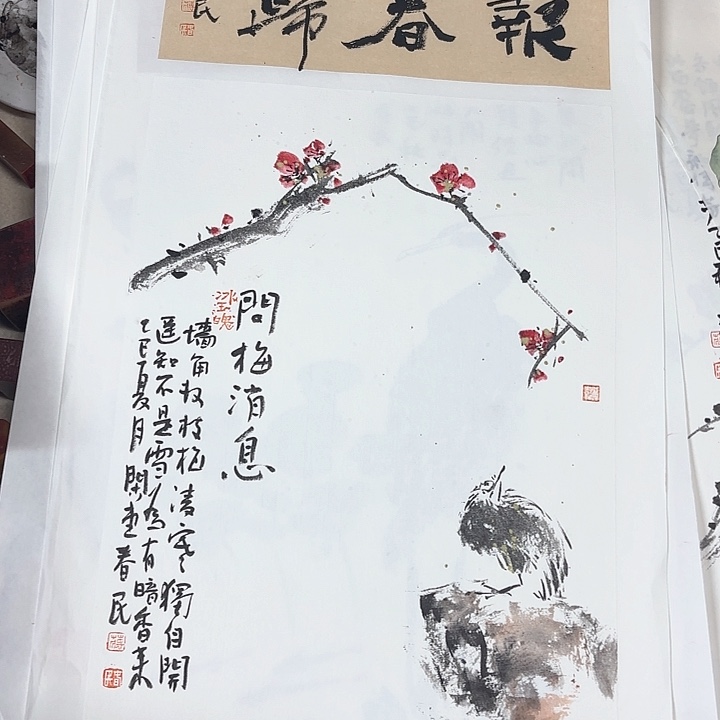 報春歸
民
問梅消息
墙角数枝梅凌寒獨自開
遥知不是雪為有暗香来
乙巳夏月閑堂春民